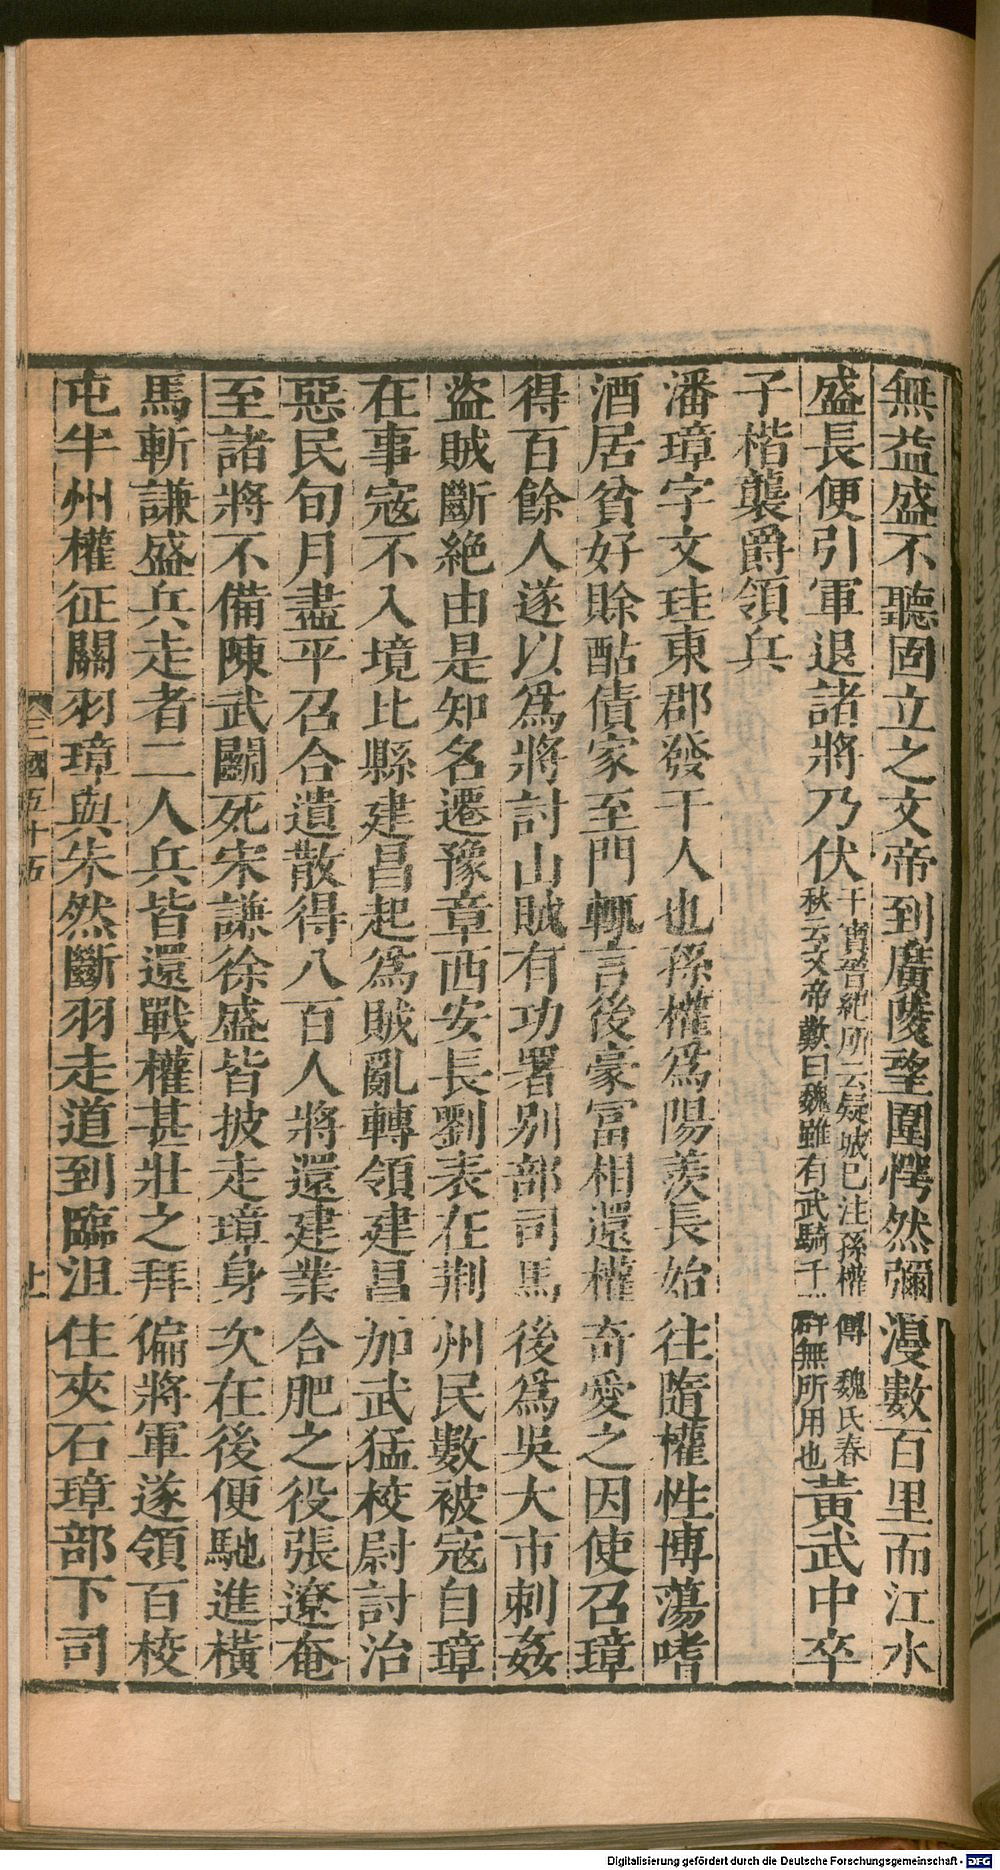 無益盛不聽固立之文帝到廣陵望圍愕然彌漫數百里而江水
盛長便引軍退諸將乃伏
干寶晉紀所云疑城已注孫權傳 魏氏春
秋云文帝歎曰魏雖有武騎千羣無所用也
黃武中卒
子楷襲爵領兵
潘璋字文珪東郡發干人也孫權爲陽羨長始往隨權性博蕩嗜
酒居貧好賒酤債家至門輒言後豪富相還權奇愛之因使召璋
得百餘人遂以爲將討山賊有功署別部司馬後爲吳大市刺姦
盜賊斷絶由是知名遷豫章西安長劉表在荆州民數被寇自璋
在事寇不入境比縣建昌起爲賊亂轉領建昌加武猛校尉討治
惡民旬月盡平召合遺散得八百人將還建業合肥之役張遼奄
至諸將不備陳武鬭死宋謙徐盛皆披走璋身次在後便馳進橫
馬斬謙盛兵走者二人兵皆還戰權甚壯之拜偏將軍遂領百校
屯半州權征關羽璋與朱然斷羽走道到臨沮住夾石璋部下司
三國五十五
Digitalisierung gefördert durch die Deutsche Forschungsgemeinschaft - DFG